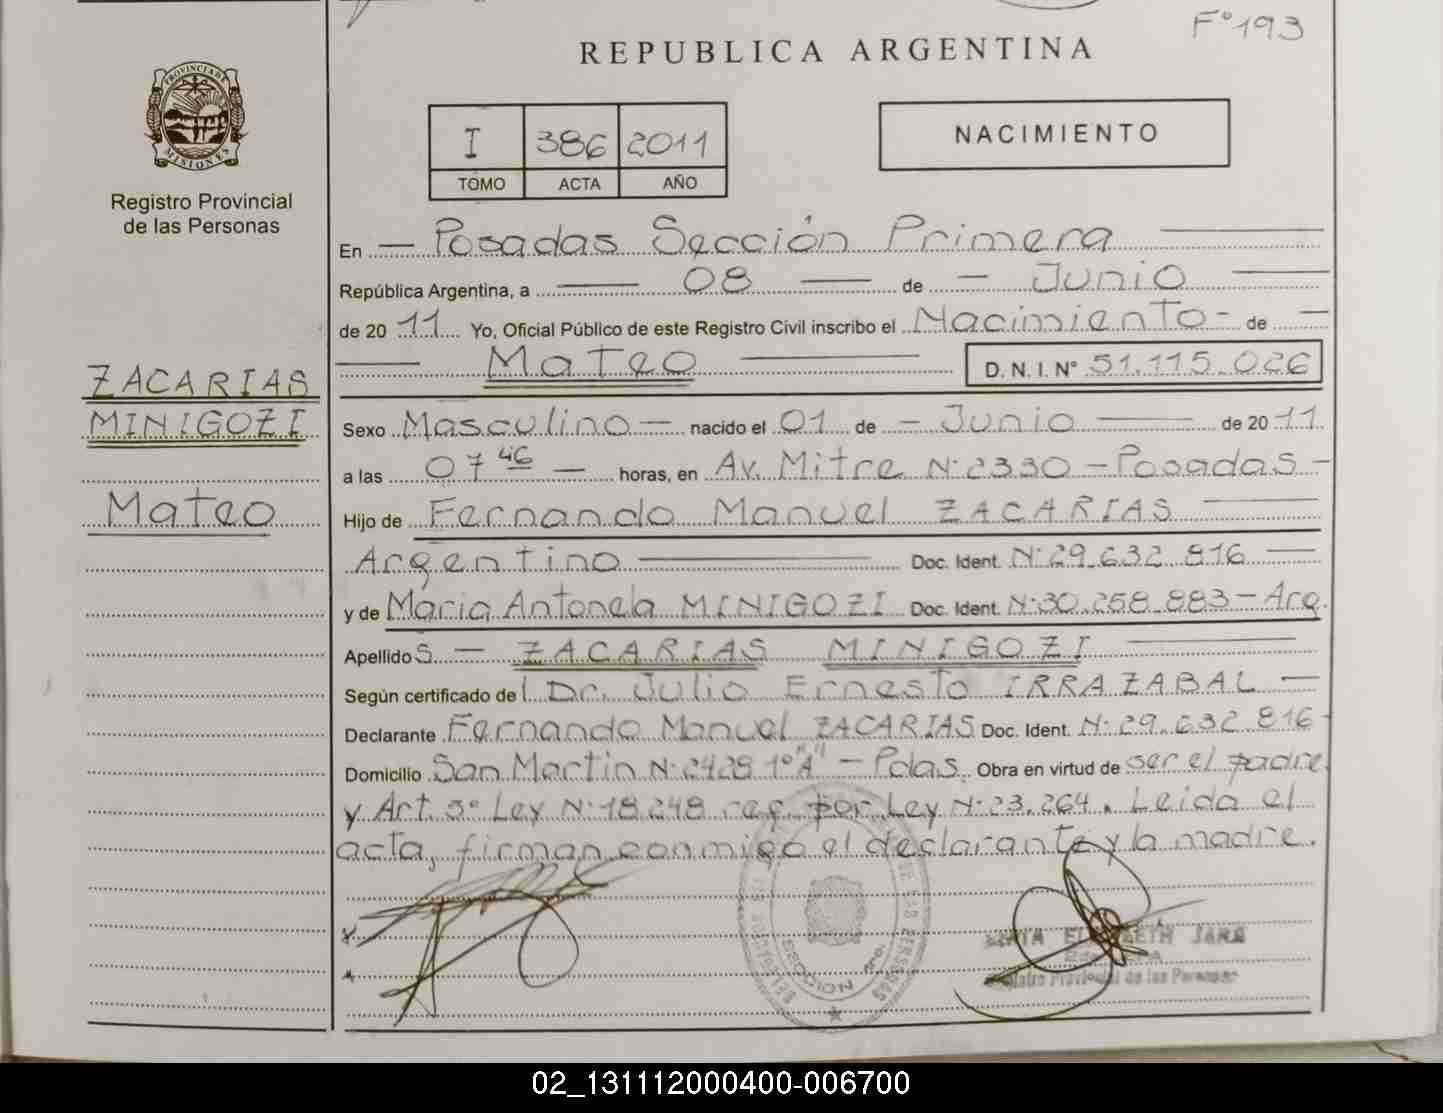 F° 193
REPUBLICA ARGENTINA
PROVINCIA DE MISIONES
Registro Provincial
de las Personas
I 386 2011
TOMO ACTA AÑO
NACIMIENTO
ZACARIAS
MINIGOZI
Mateo
En — Posadas Sección Primera —
República Argentina, a — 08 — de — Junio —
de 20 11 Yo, Oficial Público de este Registro Civil inscribo el Nacimiento - de —
— Mateo — D. N. I. N° 51.115.026
Sexo Masculino — nacido el 01 de — Junio — de 20 11
a las 07 46 — horas, en Av. Mitre N° 2330 - Posadas -
Hijo de Fernando Manuel ZACARIAS —
Argentino — Doc. Ident. N° 29.632.816 —
y de Maria Antonela MINIGOZI Doc. Ident. N° 30.258.883 - Arg.
Apellidos — ZACARIAS MINIGOZI —
Según certificado del Dr. Julio Ernesto IRRAZABAL —
Declarante Fernando Manuel ZACARIAS Doc. Ident. N° 29.632.816 -
Domicilio San Martin N° 2428 1° "A" - Pdas. Obra en virtud de ser el padre
y Art. 5° Ley N° 18.248 ref. por Ley N° 23.264. Leida el
acta, firman conmigo el declarante y la madre.
SECCION 1ra.
DE LAS PERSONAS
JARA
Registro Provincial de las Personas
02_131112000400-006700